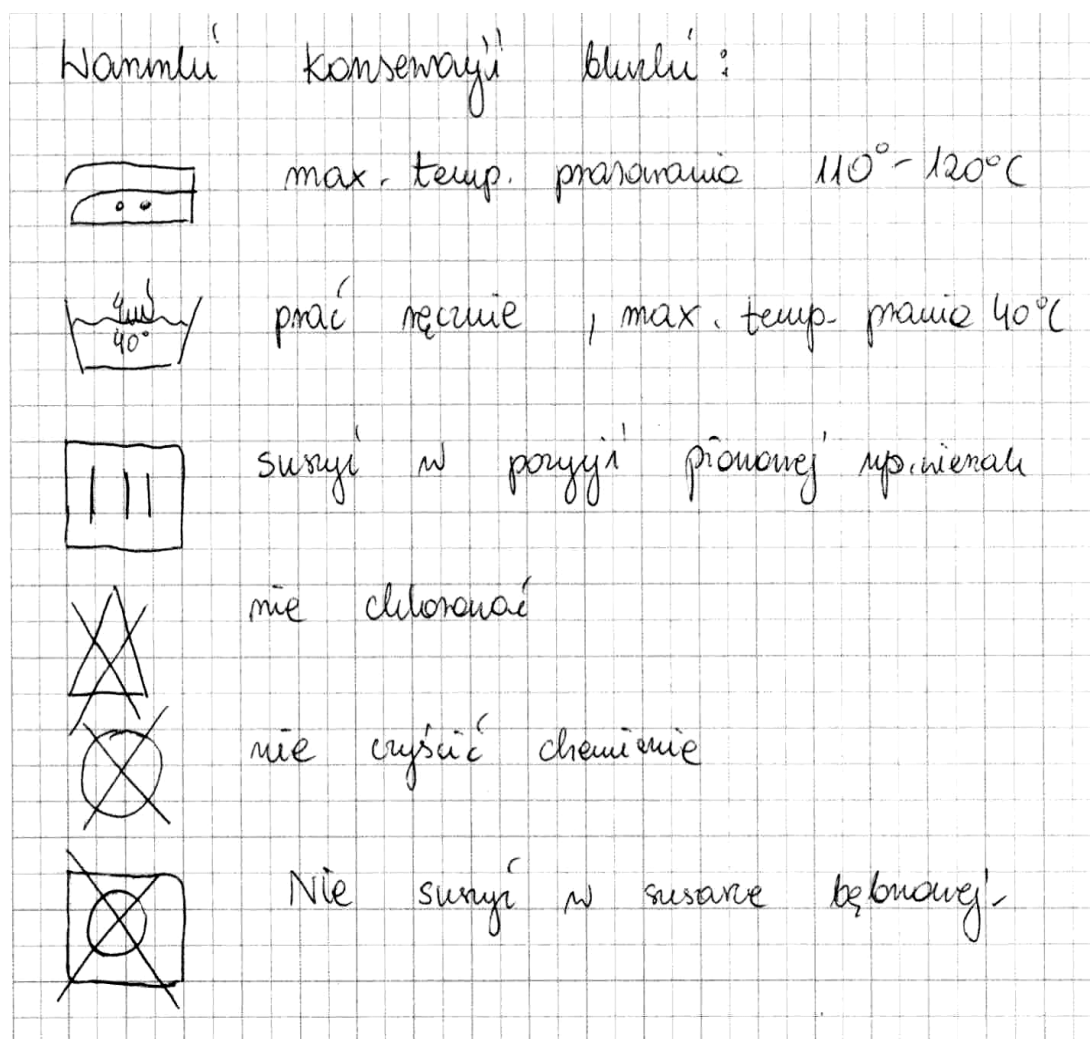 Warunki konserwacji bluzki:
max. temp. prasowania 110° - 120°C
40°
prać ręcznie, max. temp. prania 40°C
suszyć w pozycji pionowej np. wieszak
nie chlorować
nie czyścić chemicznie
Nie suszyć w suszarce bębnowej.